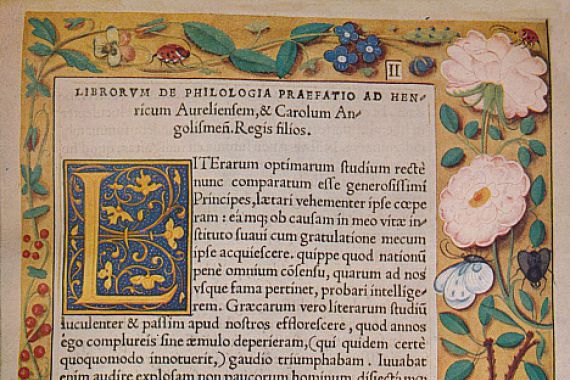 II
LIBRORVM DE PHILOLOGIA PRAEFATIO AD HEN-
ricum Aureliensem, & Carolum An-
golismeñ. Regis filios.
LITErarum optimarum studium rectè
nunc comparatum esse generosissimi
Principes, lætari vehementer ipse cœpe
ram: eámq; ob causam in meo vitæ in-
stituto suaui cum gratulatione mecum
ipse acquiescere. quippe quod nationū
penè omnium cōsensu, quarum ad nos
vsque fama pertinet, probari intellige-
rem. Græcarum vero literarum studiū
luculenter & passim apud nostros efflorescere, quod annos
ego complureis sine æmulo deperieram, (qui quidem certè
quoquomodo innotuerit,) gaudio triumphabam. Iuuabat
enim audire explosam non paucorum hominum